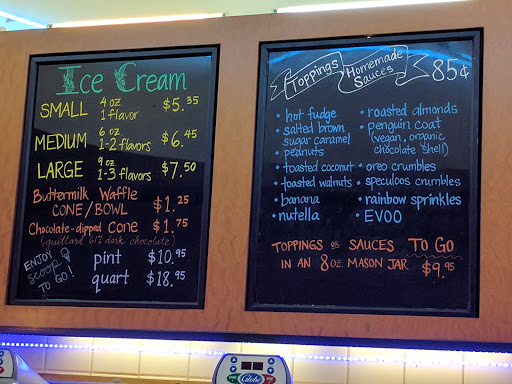 Ice Cream
SMALL 4 oz 1 flavor $5.35
MEDIUM 6 oz 1-2 flavors $6.45
LARGE 9 oz 1-3 flavors $7.50
Buttermilk Waffle
CONE/BOWL $1.25
Chocolate-dipped Cone $1.75
(guittard 61% dark chocolate)
ENJOY
SCOOP
TO GO!
pint $10.95
quart $18.95
Toppings Homemade Sauces 85¢
• hot fudge
• salted brown
sugar caramel
• peanuts
• toasted coconut
• toasted walnuts
• banana
• nutella
• roasted almonds
• penguin coat
(vegan, organic
chocolate shell)
• oreo crumbles
• speculoos crumbles
• rainbow sprinkles
• EVOO
TOPPINGS OR SAUCES TO GO
IN AN 8 OZ. MASON JAR $9.95
Globe